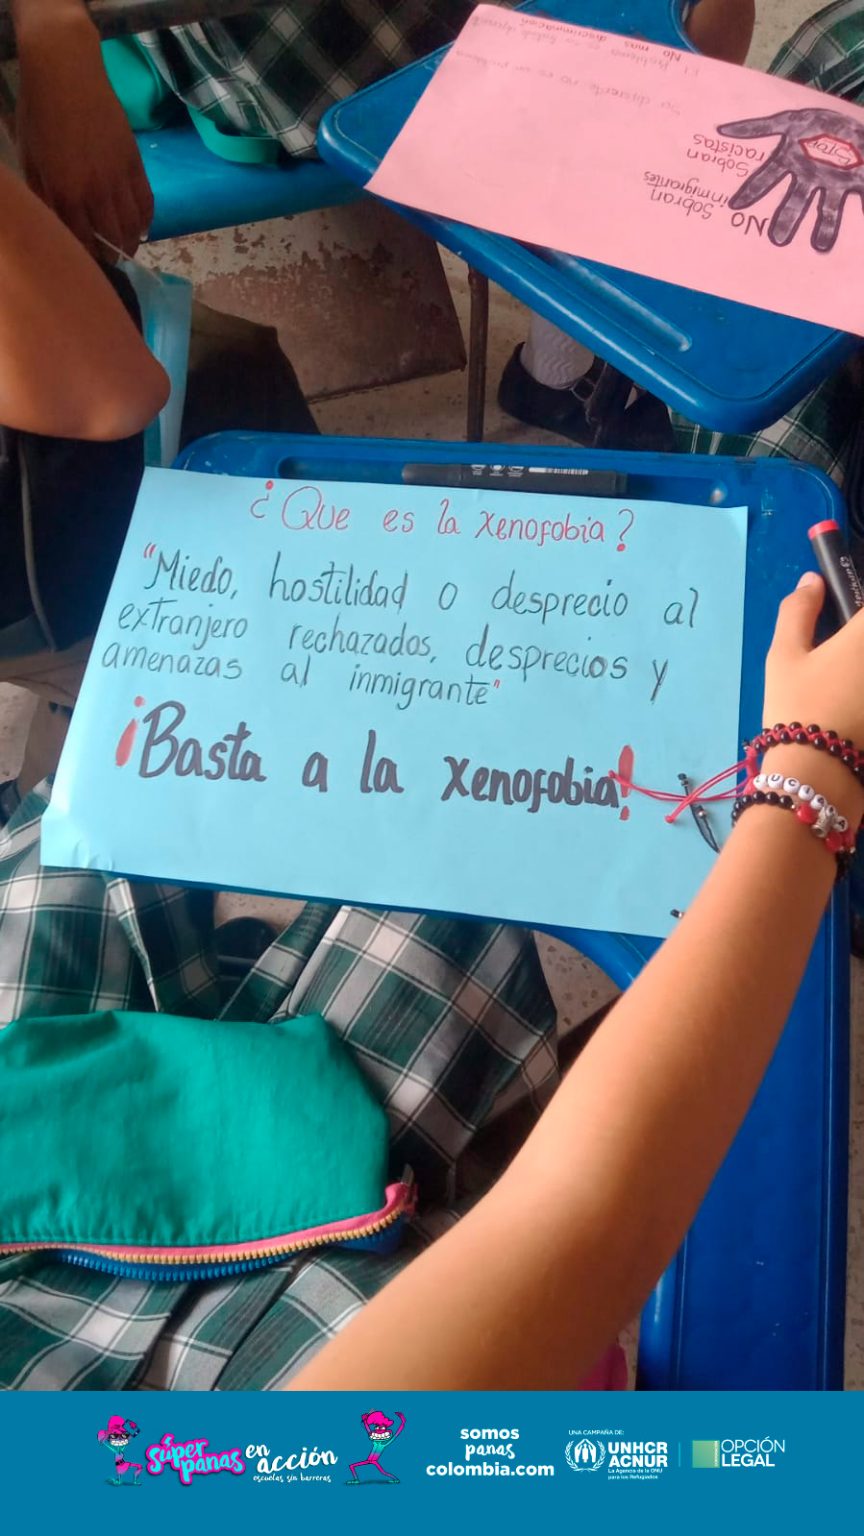 El problema es la
No mas discriminación
Ser diferente no es un problema
No
Sobran
inmigrantes
Sobran
racistas
STOP
¿Que es la xenofobia?
"Miedo, hostilidad o desprecio al
extranjero rechazados, desprecios y
amenazas al inmigrante"
¡Basta a la xenofobia!
LUCIANA
súper
panas
en
acción
escuelas sin barreras
somos
panas
colombia.com
UNA CAMPAÑA DE:
UNHCR
ACNUR
La Agencia de la ONU
para los Refugiados
OPCIÓN
LEGAL